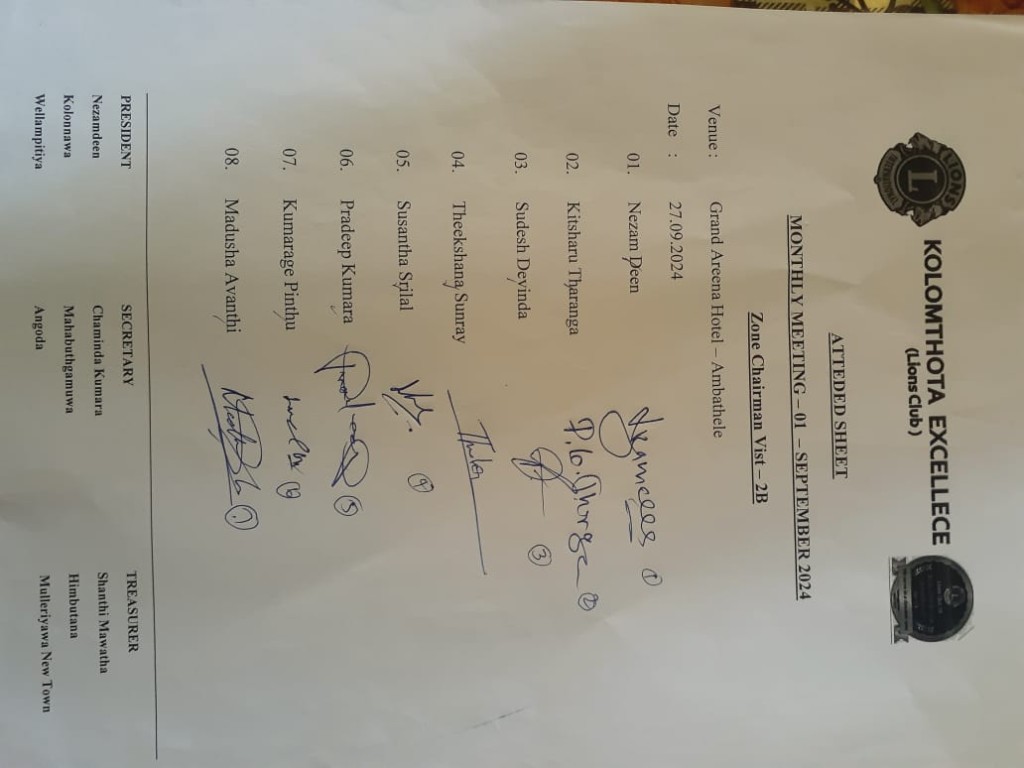 KOLOMTHOTA EXCELLECE
(Lions Club)
LIONS
L
INTERNATIONAL
ATTEDED SHEET
MONTHLY MEETING – 01 – SEPTEMBER 2024
Zone Chairman Vist – 2B
Venue : Grand Areena Hotel – Ambathele
Date : 27.09.2024
01. Nezam Deen ①
02. Kitsharu Tharanga ②
03. Sudesh Devinda ③
04. Theekshana Sunray
05. Susantha Srilal ④
06. Pradeep Kumara ⑤
07. Kumarage Pinthu ⑥
08. Madusha Avanthi ⑦
PRESIDENT SECRETARY TREASURER
Nezamdeen Chaminda Kumara Shanthi Mawatha
Kolonnawa Mahabuthgamuwa Himbutana
Wellampitiya Angoda Mulleriyawa New Town